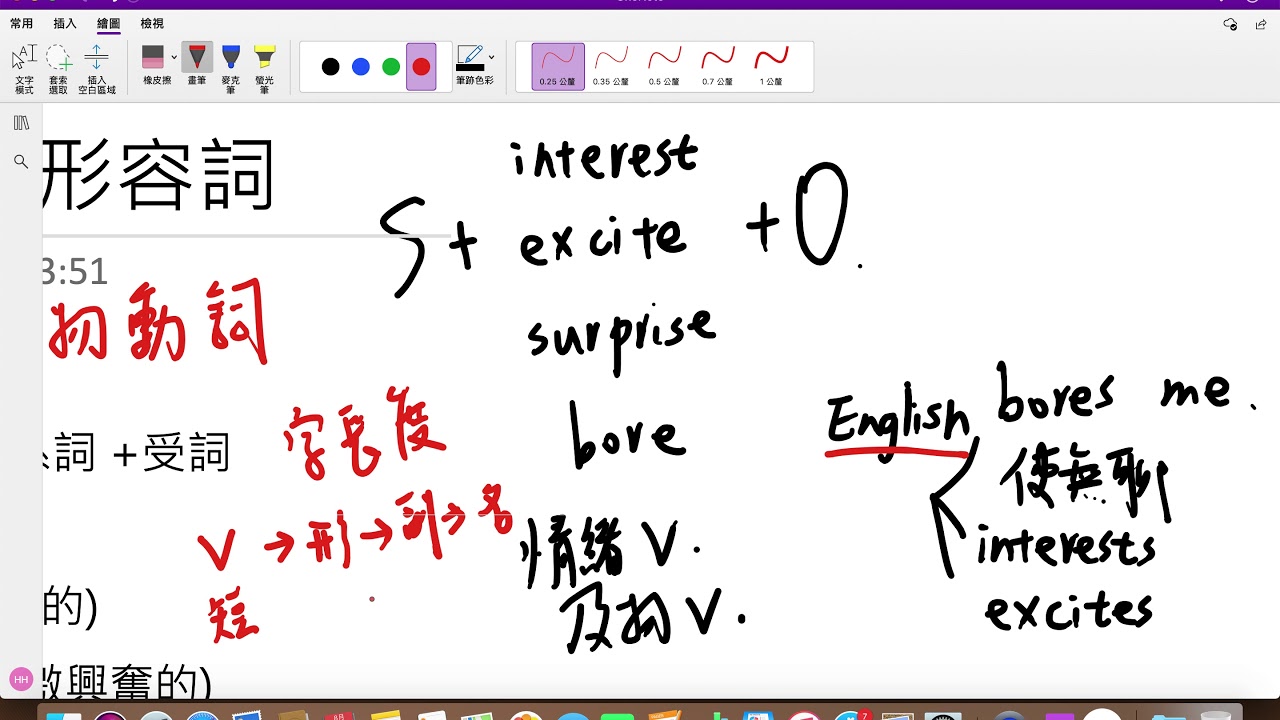 常用 插入 繪圖 檢視
文字模式 套索選取 插入空白區域 橡皮擦 畫筆 麥克筆 螢光筆 筆跡色彩 0.25 公釐 0.35 公釐 0.5 公釐 0.7 公釐 1 公釐
形容詞
3:51
物動詞
詞 +受詞
字長度
V → 形 → 副 → 名
短
的)
興奮的)
interest
S + excite + O.
surprise
bore
情緒 V.
及物 V.
English bores me.
使無聊
interests
excites
HH